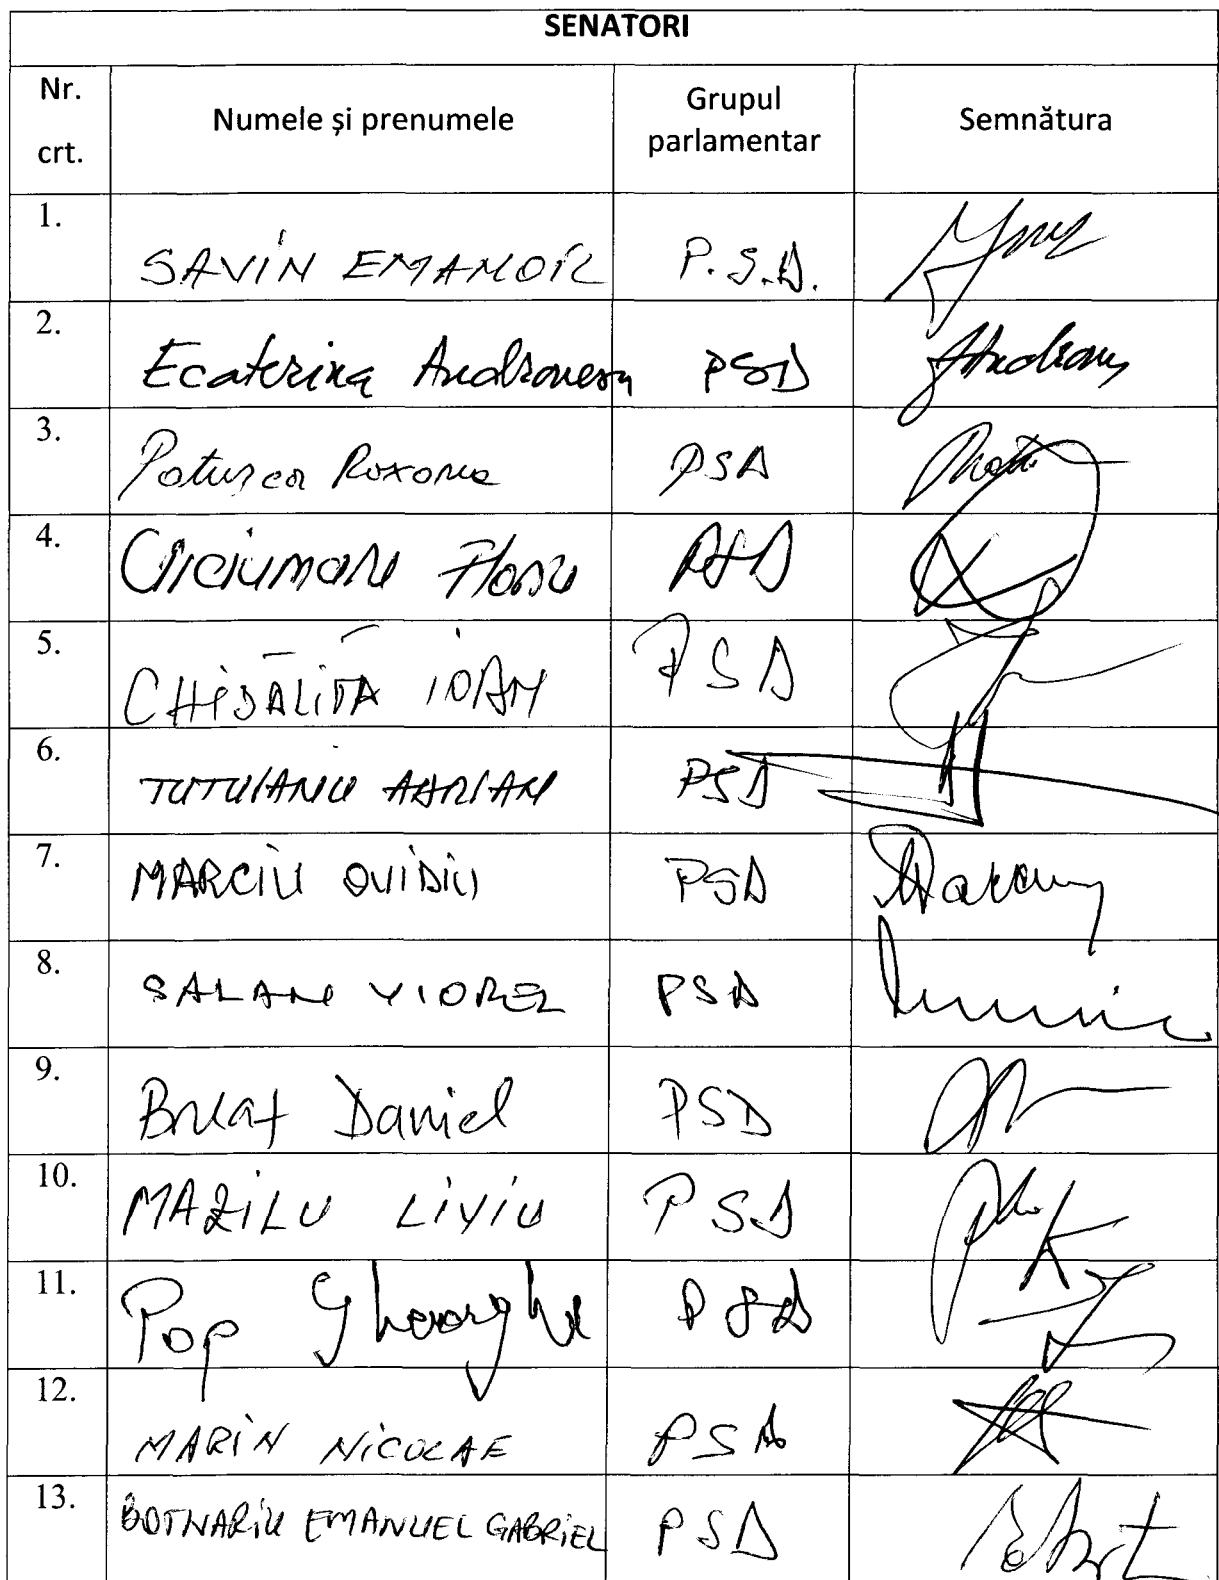 SENATORI
Nr. crt. Numele și prenumele Grupul parlamentar Semnătura
1. SAVIN EMANOIL P.S.D.
2. Ecaterina Andronescu PSD
3. Paturca Roxana PSD
4. Circiumaru Florin PSD
5. CHISĂLIȚĂ IOAN PSD
6. TUTUIANU ADRIAN PSD
7. MARCIU OVIDIU PSD
8. SALAN VIOREL PSD
9. Daniel PSD
10. MAZILU LIVIU PSD
11. Pop Gheorghe PSD
12. MARIN NICOLAE PSD
13. BOTNARIU EMANUEL GABRIEL PSD